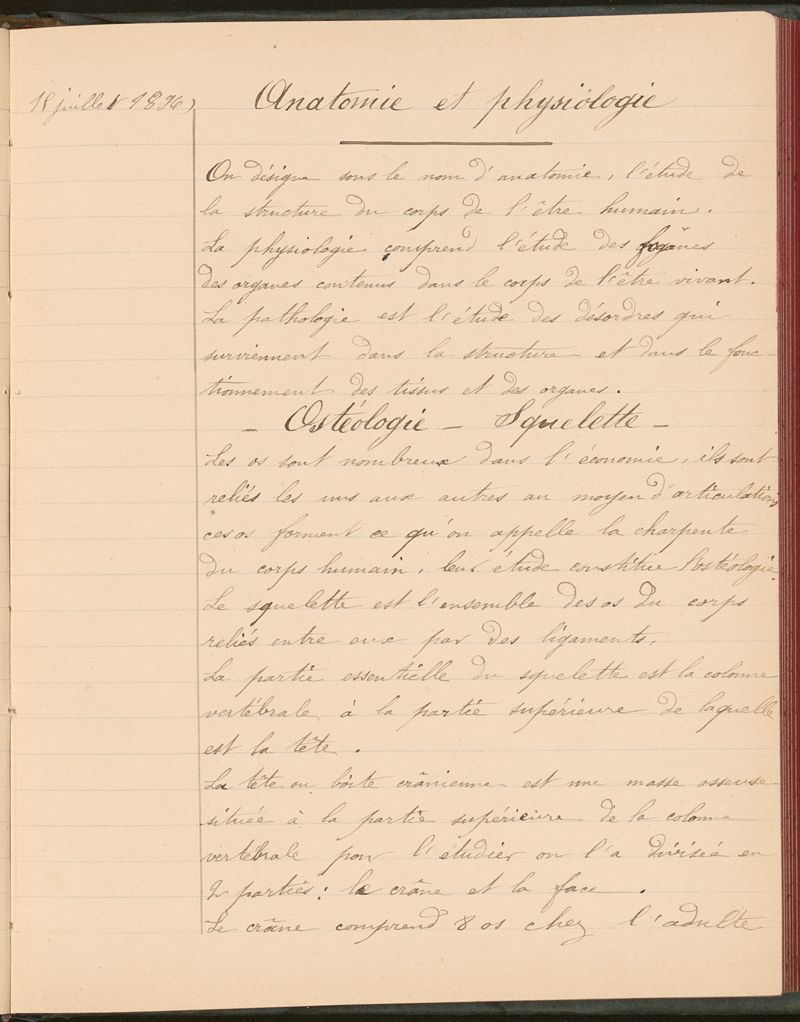 18 juillet 1896,
Anatomie et physiologie
On désigne sous le nom d'anatomie, l'étude de
la structure du corps de l'être humain.
La physiologie comprend l'étude des
des organes contenus dans le corps de l'être vivant.
La pathologie est l'étude des désordres qui
surviennent dans la structure et dans le fonc-
tionnement des tissus et des organes.
- Ostéologie - Squelette -
Les os sont nombreux dans l'économie, ils sont
reliés les uns aux autres au moyen d'articulations
ces os forment ce qu'on appelle la charpente
du corps humain, leur étude constitue l'ostéologie.
Le squelette est l'ensemble des os du corps
reliés entre eux par des ligaments.
La partie essentielle du squelette est la colonne
vertébrale à la partie supérieure de laquelle
est la tête.
La tête ou boîte crânienne est une masse osseuse
située à la partie supérieure de la colonne
vertébrale pour l'étudier on l'a divisée en
2 parties : le crâne et la face.
Le crâne comprend 8 os chez l'adulte